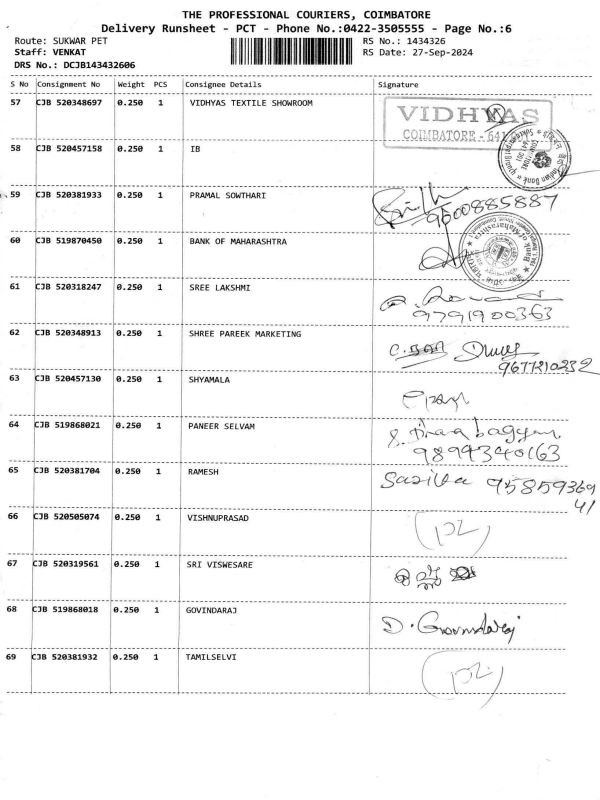 THE PROFESSIONAL COURIERS, COIMBATORE
Delivery Runsheet - PCT - Phone No.:0422-3505555 - Page No.:6
Route: SUKWAR PET RS No.: 1434326
Staff: VENKAT RS Date: 27-Sep-2024
DRS No.: DCJB143432606
S No Consignment No Weight PCS Consignee Details Signature
57 CJB 520348697 0.250 1 VIDHYAS TEXTILE SHOWROOM VIDHYAS
COIMBATORE - 641
58 CJB 520457158 0.250 1 IB
59 CJB 520381933 0.250 1 PRAMAL SOWTHARI
9500885887
60 CJB 519870450 0.250 1 BANK OF MAHARASHTRA Bank of Maharashtra
61 CJB 520318247 0.250 1 SREE LAKSHMI
9791900363
62 CJB 520348913 0.250 1 SHREE PAREEK MARKETING
9677210232
63 CJB 520457130 0.250 1 SHYAMALA
64 CJB 519868021 0.250 1 PANEER SELVAM
9894340163
65 CJB 520381704 0.250 1 RAMESH 95859369
41
66 CJB 520505074 0.250 1 VISHNUPRASAD
67 CJB 520319561 0.250 1 SRI VISWESARE
68 CJB 519868018 0.250 1 GOVINDARAJ D. Govindaraj
69 CJB 520381932 0.250 1 TAMILSELVI